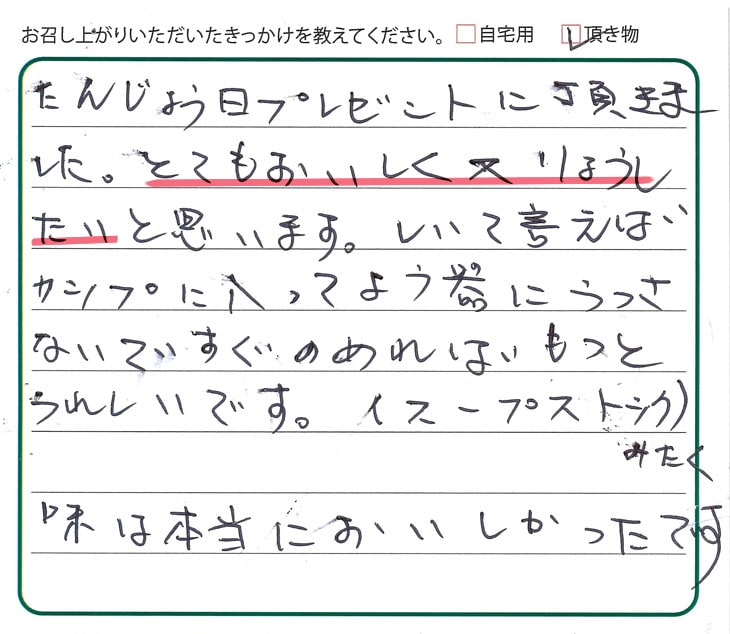 お召し上がりいただいたきっかけを教えてください。 □自宅用 ☑頂き物
たんじょう日プレゼントに頂きま
した。とてもおいしく又りょうし
たいと思います。しいて言えば
カップに入ってよう器にうつさ
ないですぐのめればもっと
うれしいです。(スープストック)
みたく
味は本当においしかったです